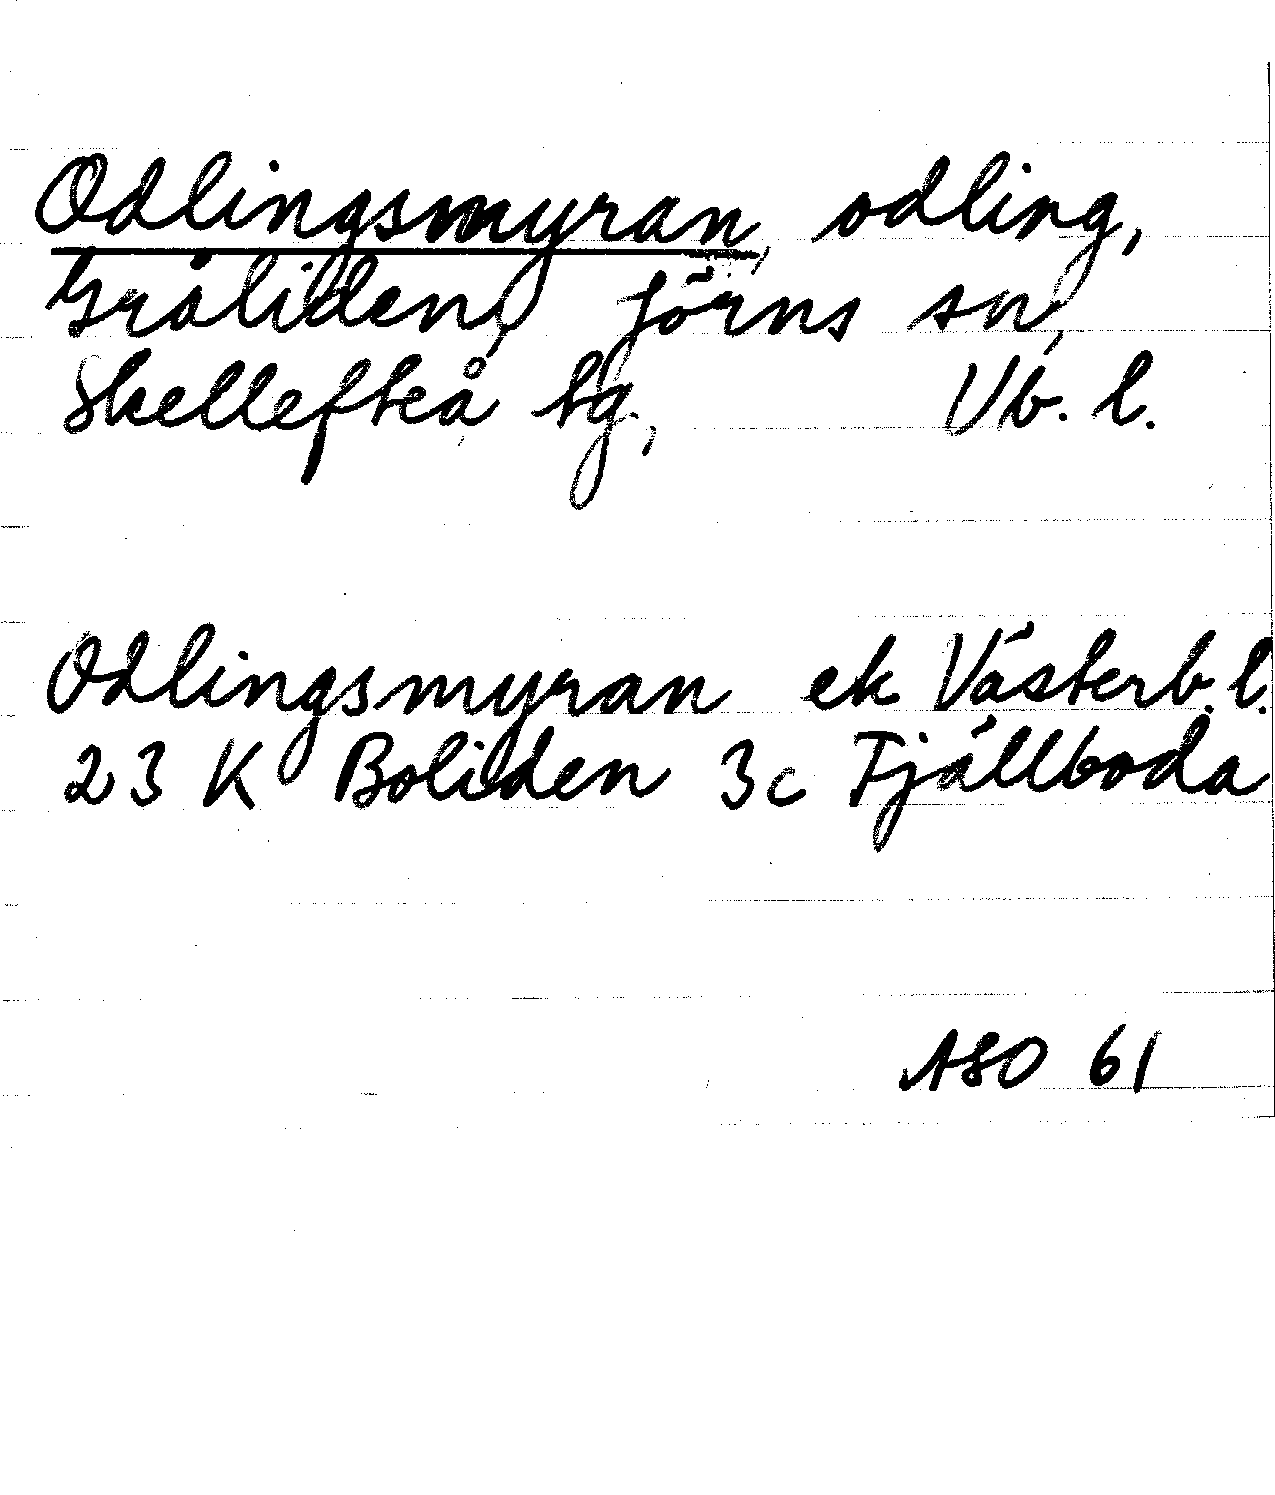 Odlingsmyran, odling,
Gråliden, Jörns sn,
Skellefteå tg., Vb. l.
Odlingsmyran ek Västerb. l.
23 K Boliden 3c Fjällboda
ASO 61